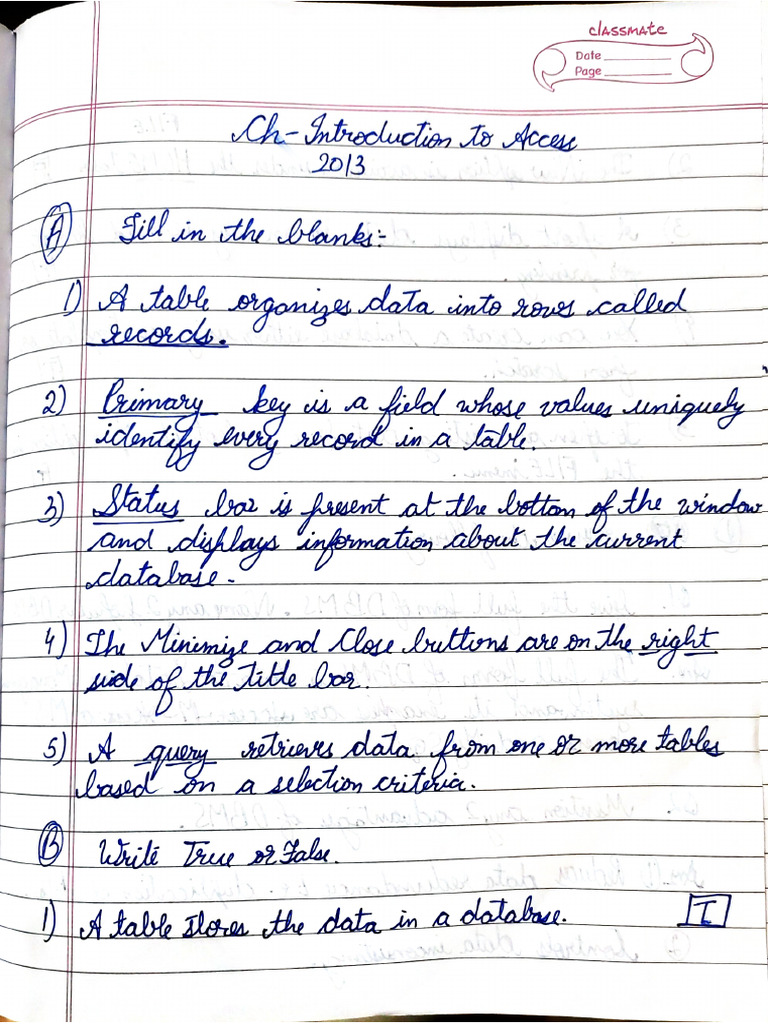 classmate
Date
Page
Ch-Introduction to Access
2013
A Fill in the blanks:-
1) A table organizes data into rows called
records.
2) Primary key is a field whose values uniquely
identify every record in a table.
3) Status bar is present at the bottom of the window
and displays information about the current
database.
4) The Minimize and Close buttons are on the right
side of the Title bar.
5) A query retrieves data from one or more tables
based on a selection criteria.
B Write True or False.
1) A table stores the data in a database. T